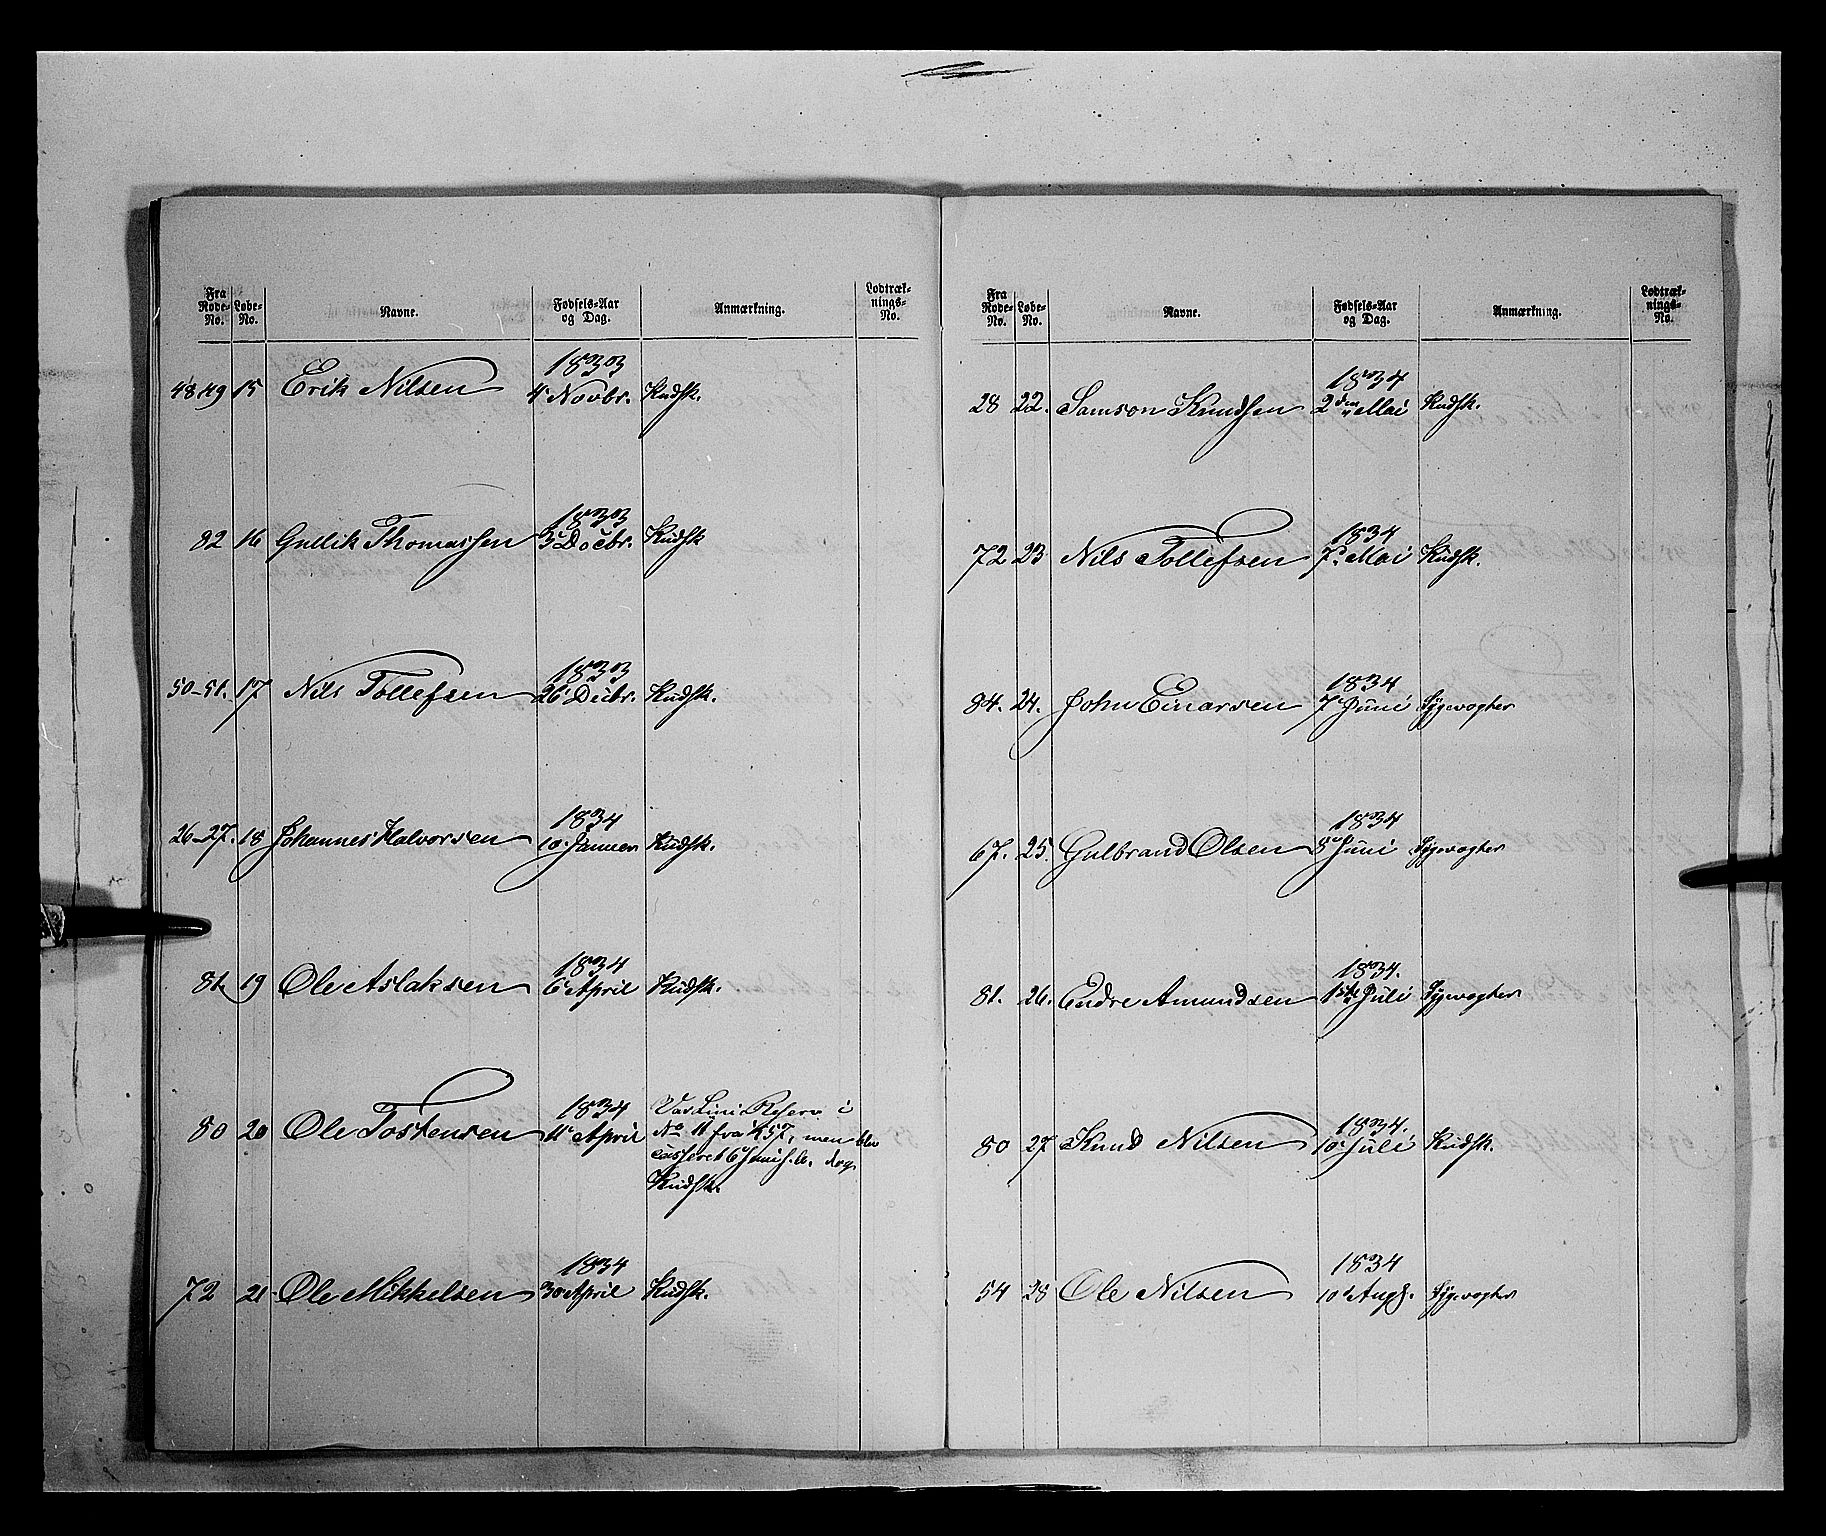 Fra Rode-No. Løbe-No. Navne. Fødsels-Aar og Dag. Anmærkning. Lodtræk-nings-No.
1833
48-49 15 Erik Nilsen 4 Novbr. Kudsk.
1833
82 16 Gullik Thomassen 3 Decbr. Kudsk
1833
50-51. 17 Nils Tollefsen 26 Decbr. Kudsk.
1834
26-27. 18 Johannes Halvorsen 10. Januer Kudsk.
1834
81. 19 Ole Aslaksen 6 April Kudsk.
1834 Var Lini Reserv i
80 20 Ole Tostensen 11 April No 11 fra 457, men blev
casseret 6 Juni
Kudsk.
1834
72 21 Ole Mikkelsen 30 April Kudsk.
Fra Rode-No. Løbe-No. Navne. Fødsels-Aar og Dag. Anmærkning. Lodtræk-nings-No.
1834
28 22. Samson Knudsen 2den Mai Kudsk.
1834
72 23 Nils Tollefsen 7. Mai Kudsk.
1834
84. 24. John Einarsen 7 Juni Sygevogter
1834
67. 25. Gulbrand Olsen 8 Juni Sygevogter
1834.
81. 26. Endre Amundsen 1ste Juli Sygevogter
1834.
80 27 Knud Nilsen 10 Juli Kudsk.
1834
54 28 Ole Nilsen 10 Aug. Sygevogter